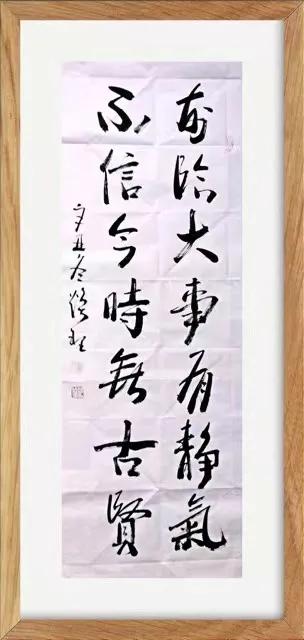 每臨大事有静氣
不信今時無古賢
辛丑冬